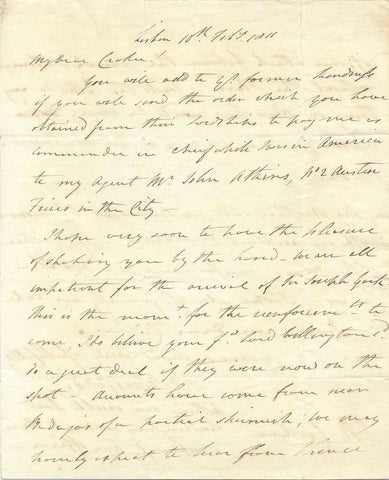 Lisbon 10th Feby 1811
My dear Croker!
You will add to yr former kindness
if you will send the order which you have
obtained from their Lordships to pay me as
commander in chief whilst I was in America
to my Agent Mr John Atkins, No 2 Austin
Friers in the City —
I hope very soon to have the pleasure
of shaking you by the hand — we are all
impatient for the arrival of Sir Joseph York
this is the momt for the reinforcemts to
come, I do believe your fd Lord Wellington cd
do a great deal if they were now on the
spot — accounts have come from near
Badajos of a partial skirmish; we may
hourly expect to hear from thence